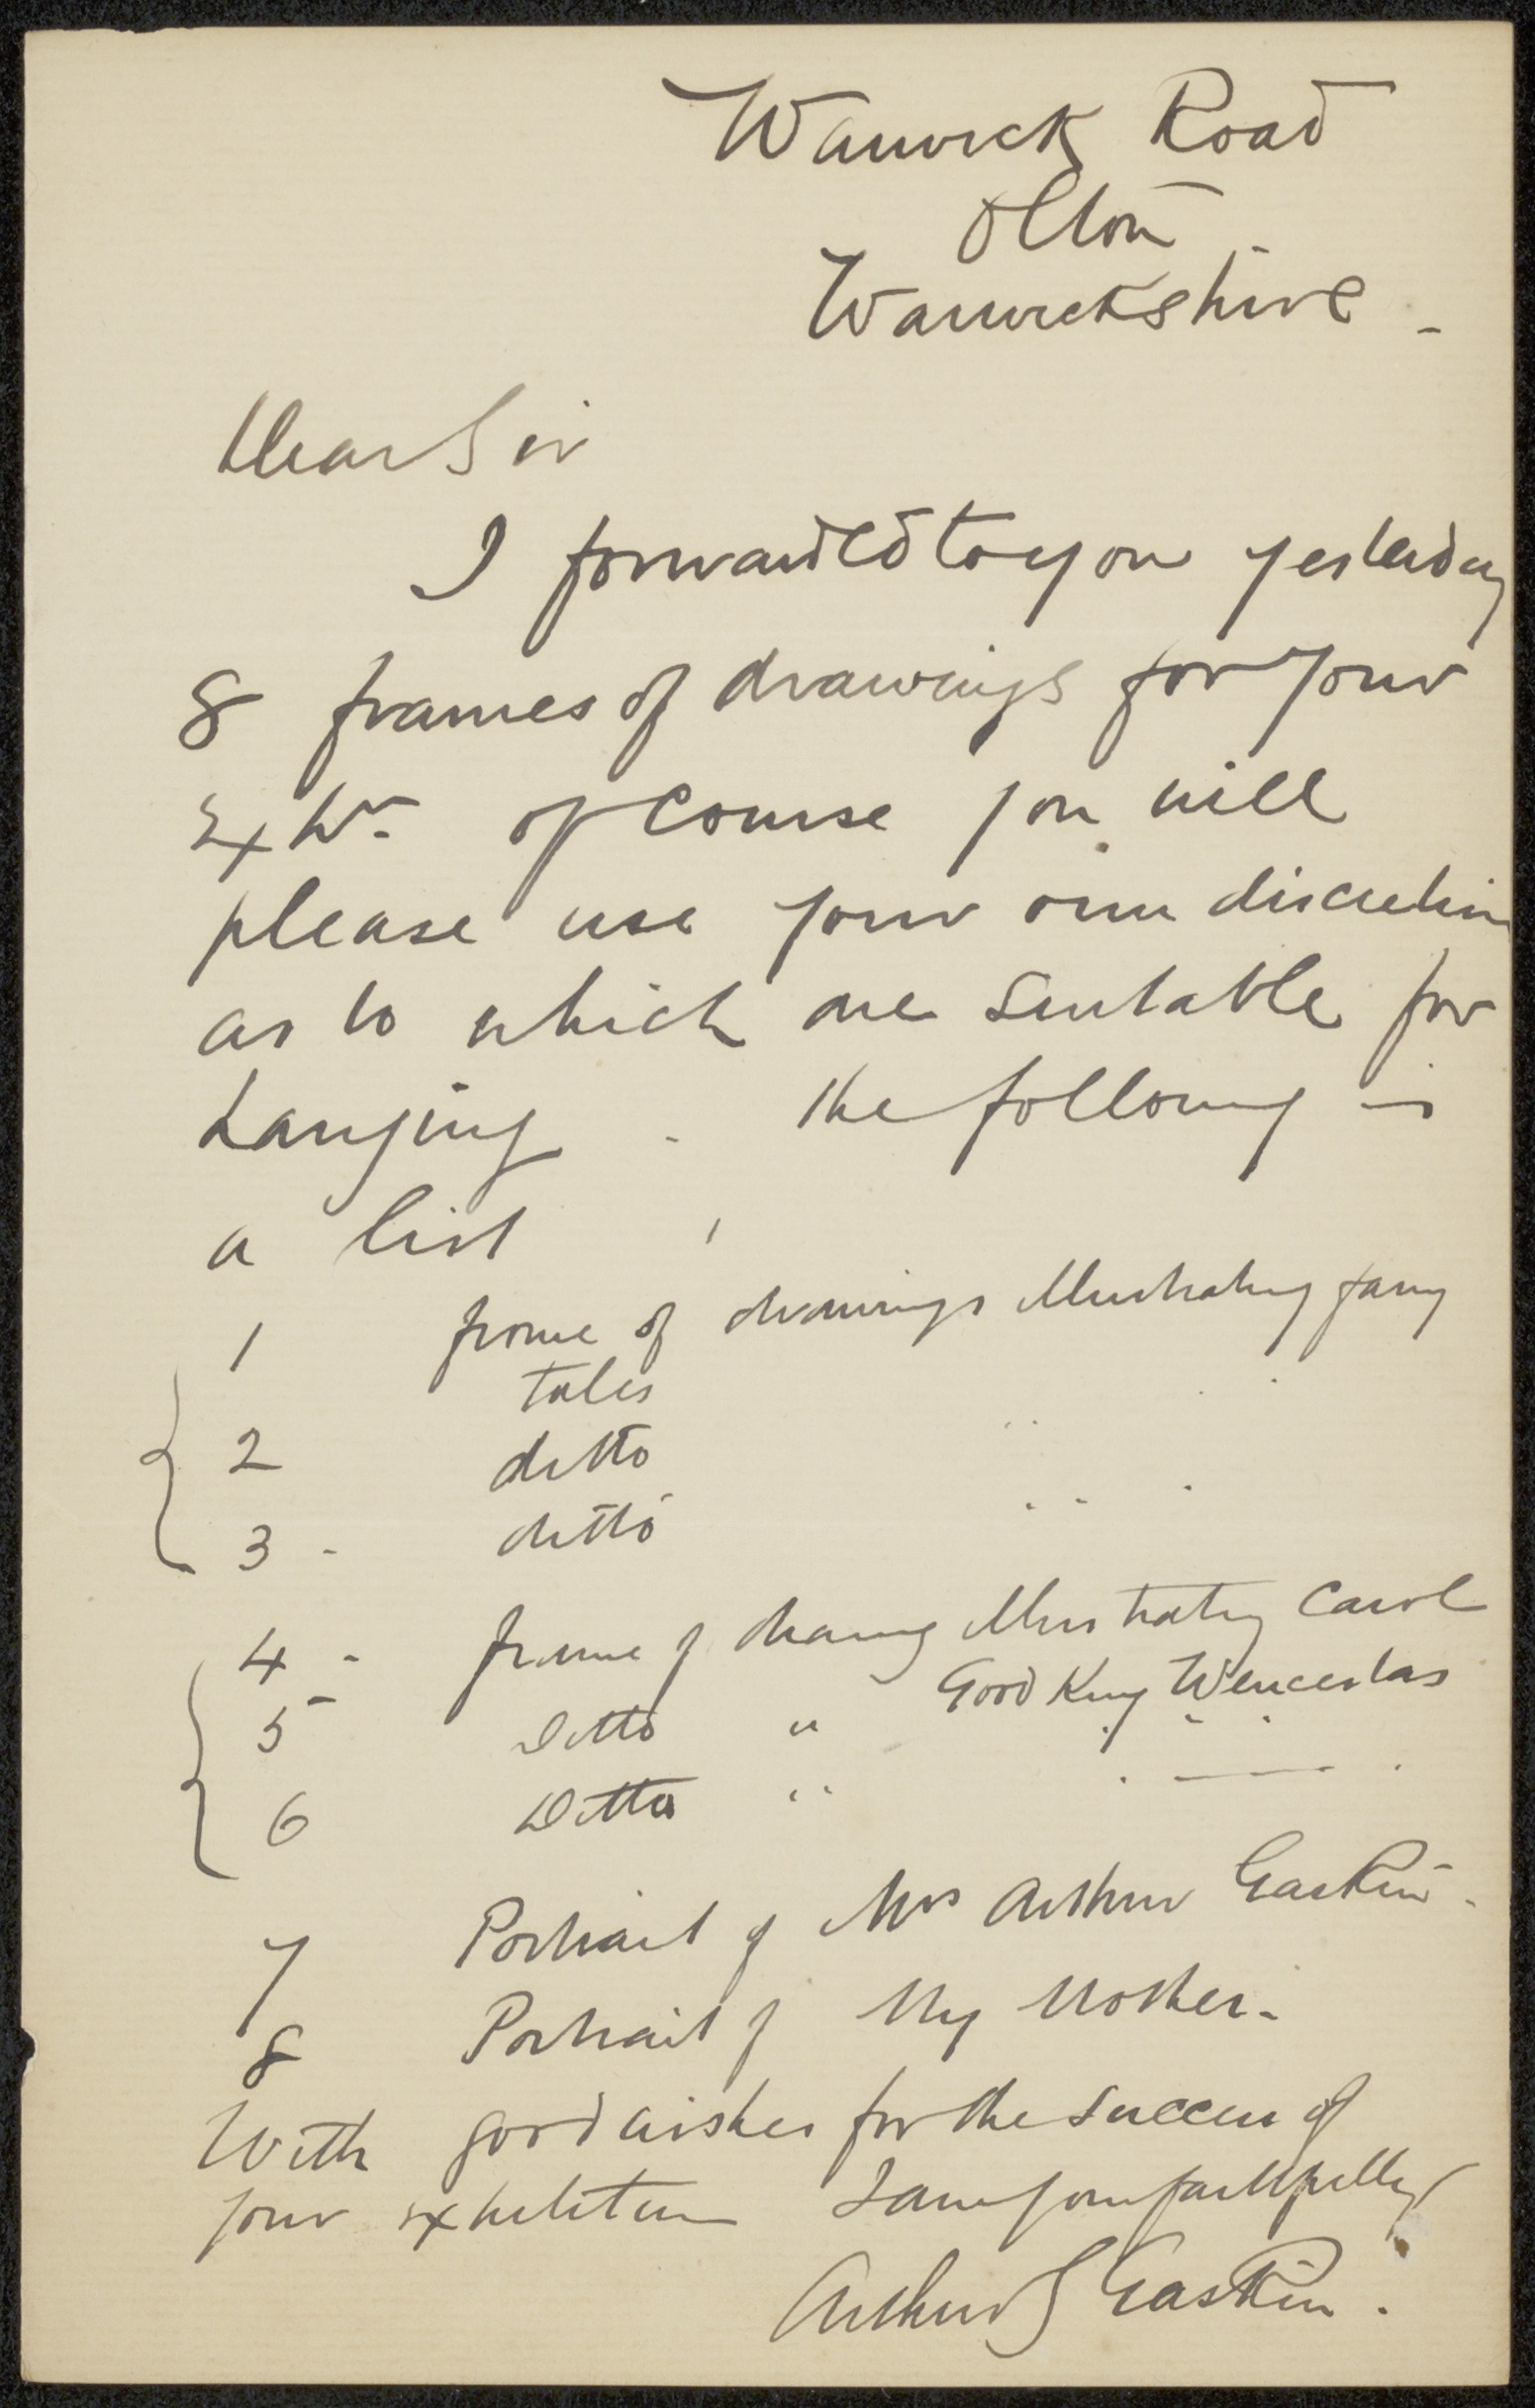 Warwick Road
Olton
Warwickshire -
Dear Sir
I forwarded to you yesterday
8 frames of drawings for your
Exhn. of course you will
please use your own discretion
as to which are suitable for
hanging . the following is
a list
1 frame of drawings illustrating fairy
tales
2 ditto " "
3 - ditto " "
4 - frame of drawing illustrating Carol
Good King Wenceslas
5 Ditto "
6 Ditto "
7 Portrait of Mrs Arthur Gaskin -
8 Portrait of My Mother -
With good wishes for the success of
your exhibition I am yours faithfully
Arthur J Gaskin .